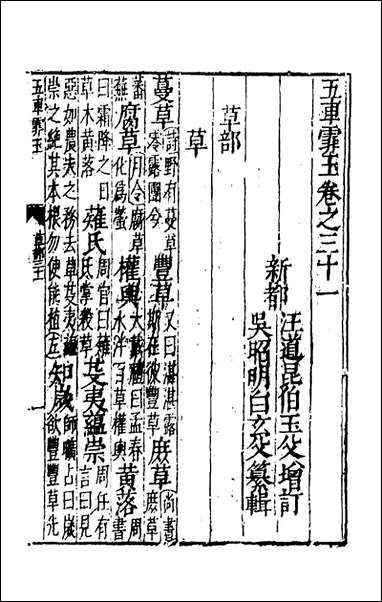 五車霏玉卷之三十一
新都
汪道昆伯玉父增訂
吳昭明白玄父纂輯
草部
草
蔓草 詩野有蔓草零露團兮 豐草 又曰湛湛露斯在彼豐草 庶草 尚書庶草
蕃蕪 腐草 月令腐草化爲螢 權輿 大戴禮曰孟春冰泮百草權輿 黃落 周書
曰霜降之日草木黃落 薙氏 周官曰薙氏掌殺草 芟夷蘊崇 周任有言曰見
惡如農夫之務去草芟夷蘊崇之絕其本根勿使能植左 知歲 師曠占曰歲欲豐豐草先
五車霏玉
草部三十一